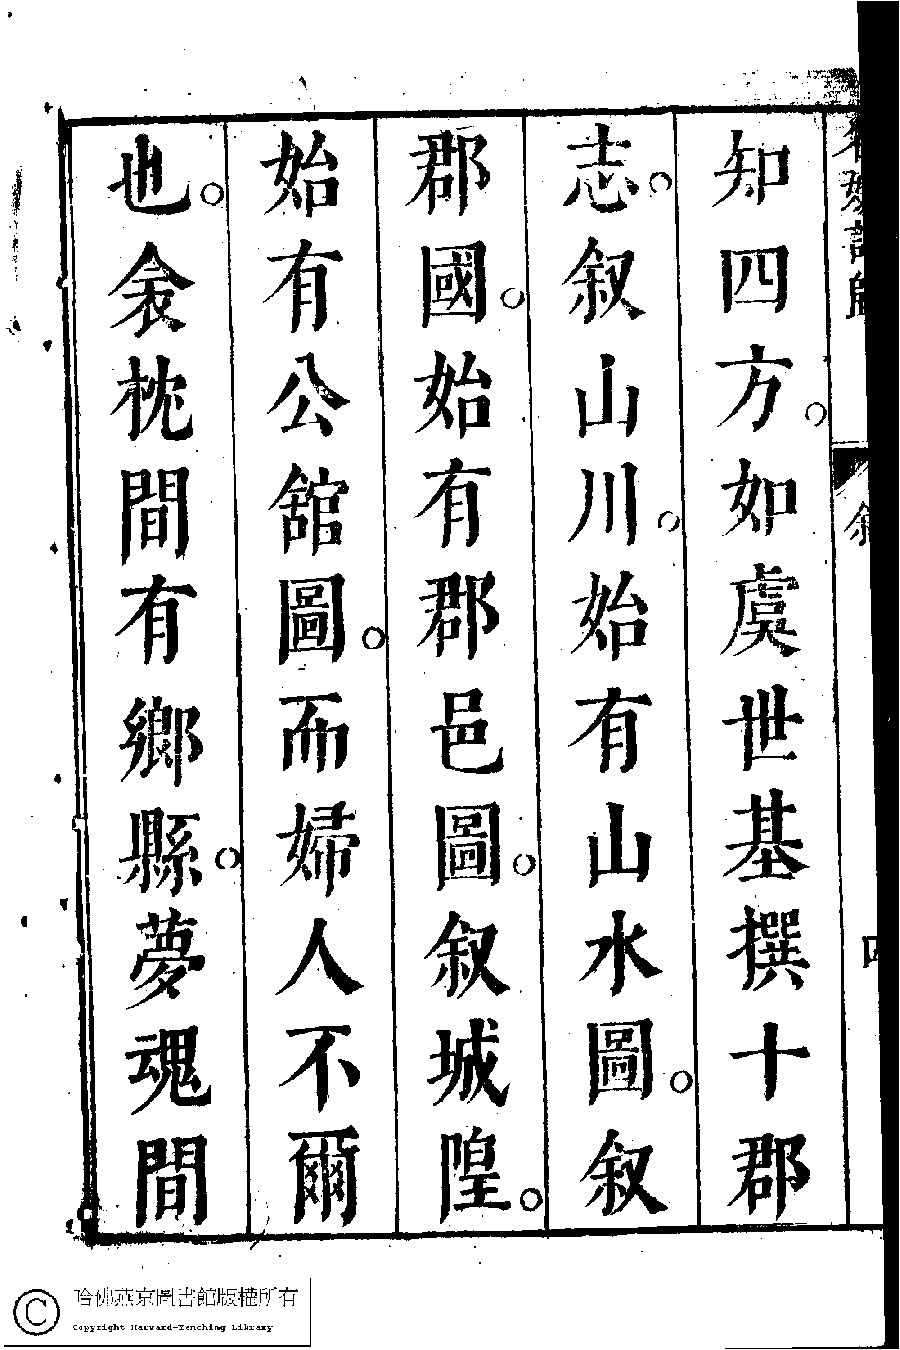 知四方如虞世基撰十郡
志叙山川始有山水圖叙
郡國始有郡邑圖叙城隍
始有公舘圖而婦人不爾
也衾枕間有鄉縣夢魂間
叙
四
哈佛燕京圖書館版權所有
Copyright Harvard-Yenching Library